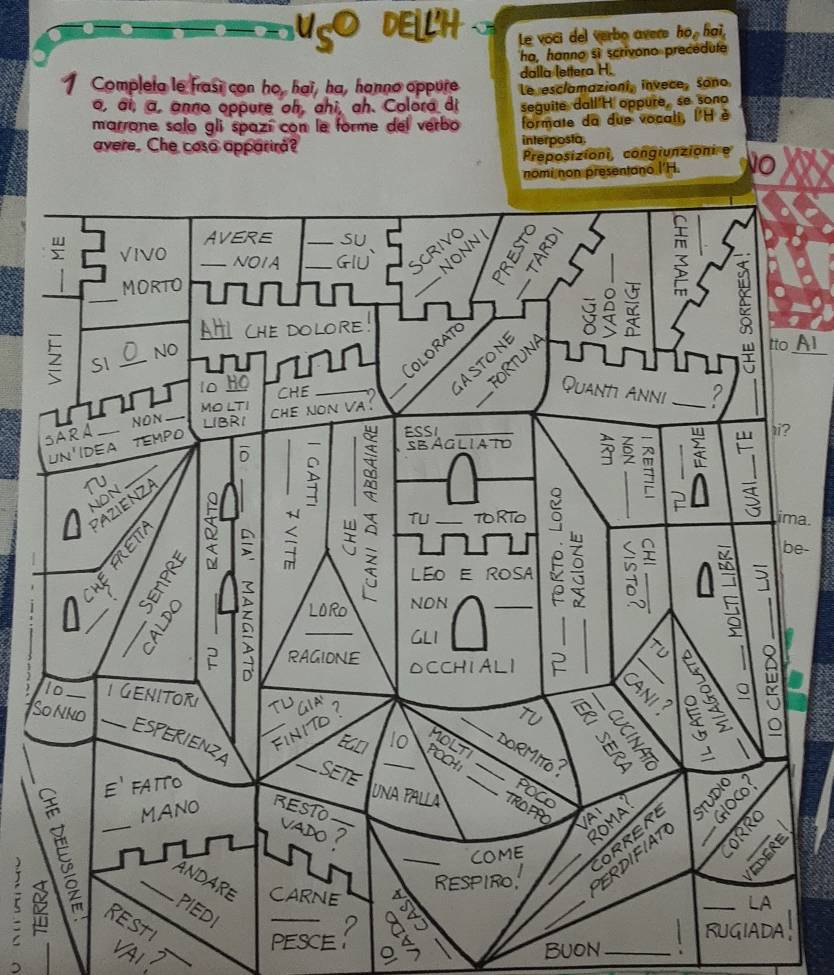 USO DELL'H
Le voci del verbo avere ho, hai,
ha, hanno si scrivono precedute
dalla lettera H.
Le esclamazioni, invece, sono
seguite dall'H oppure, se sono
formate da due vocali, l'H è
interposta.
Preposizioni, congiunzioni e
nomi non presentano l'H.
1 Completa le frasi con ho, hai, ha, hanno oppure
o, ai, a, anno oppure oh, ahi, ah. Colora di
marrone solo gli spazi con le forme del verbo
avere. Che cosa apparirà?
NO
VINTI ___ ME
VIVO
___ MORTO
AVERE
___ NOIA
___ SU
___ GIÙ
SCRIVO
___ NONNI
PRESTO
___ TARDI
OGGI
VADO ___
PARIGI
___
CHE MALE
___ CHE SORPRESA!
SI O NO
AHI CHE DOLORE!
___ COLORATO
GASTONE
___ FORTUNA
tto AI
IO HO
MOLTI
LIBRI
CHE ___?
CHE NON VA?
QUANTI ANNI ___?
SARA ___ NON ___
UN'IDEA TEMPO
ESSI ___
SBAGLIATO
TU
NON ___
PAZIENZA
TU ___ BARATO
IO ___ GIA' MANGIATO
I GATTI
___ 7 VITE
CHE ___
I CANI DA ABBAIARE
TU ___ TORTO
I RETTILI
NON ___
ARTI
TU ___ FAME
GUAI ___ TE
i?
ima.
be-
CHE FRETTA
___?
___ SEMPRE
CALDO
LORO
___
RAGIONE
LEO E ROSA
NON ___
GLI
OCCHIALI
TU ___ TORTO. LORO
___ RAGIONE
CHI ___
VISTO?
IO ___ MOLTI LIBRI
IO CREDO ___ LUI
TU
___
CANI?
IL GATO ___
MIAGOLATO
IO ___
SONNO
I GENITORI
___ ESPERIENZA
TU GIA'
___ FINITO?
EGLI
___ SETE
IO
___
UNA PALLA
MOLTI ___
POCHI
TU
___ DORMITO?
___ POCO
___ TROPPO
___ CUCINATO
IERI SERA
E' FATTO
___ MANO
RESTO ___
VADO?
___ COME
RESPIRO!
VAI
___ ROMA?
CORRERE
___ PERDIFIATO
STUDIO
___ GIOCO?
CORRO
___
VEDERE!
___ CHE DELUSIONE!
___ TERRA
ANDARE
___ PIEDI
RESTI
___ VAI?
CARNE
___
PESCE?
IO VADO
___ CASA
BUON ___!
___ LA
RUGIADA!